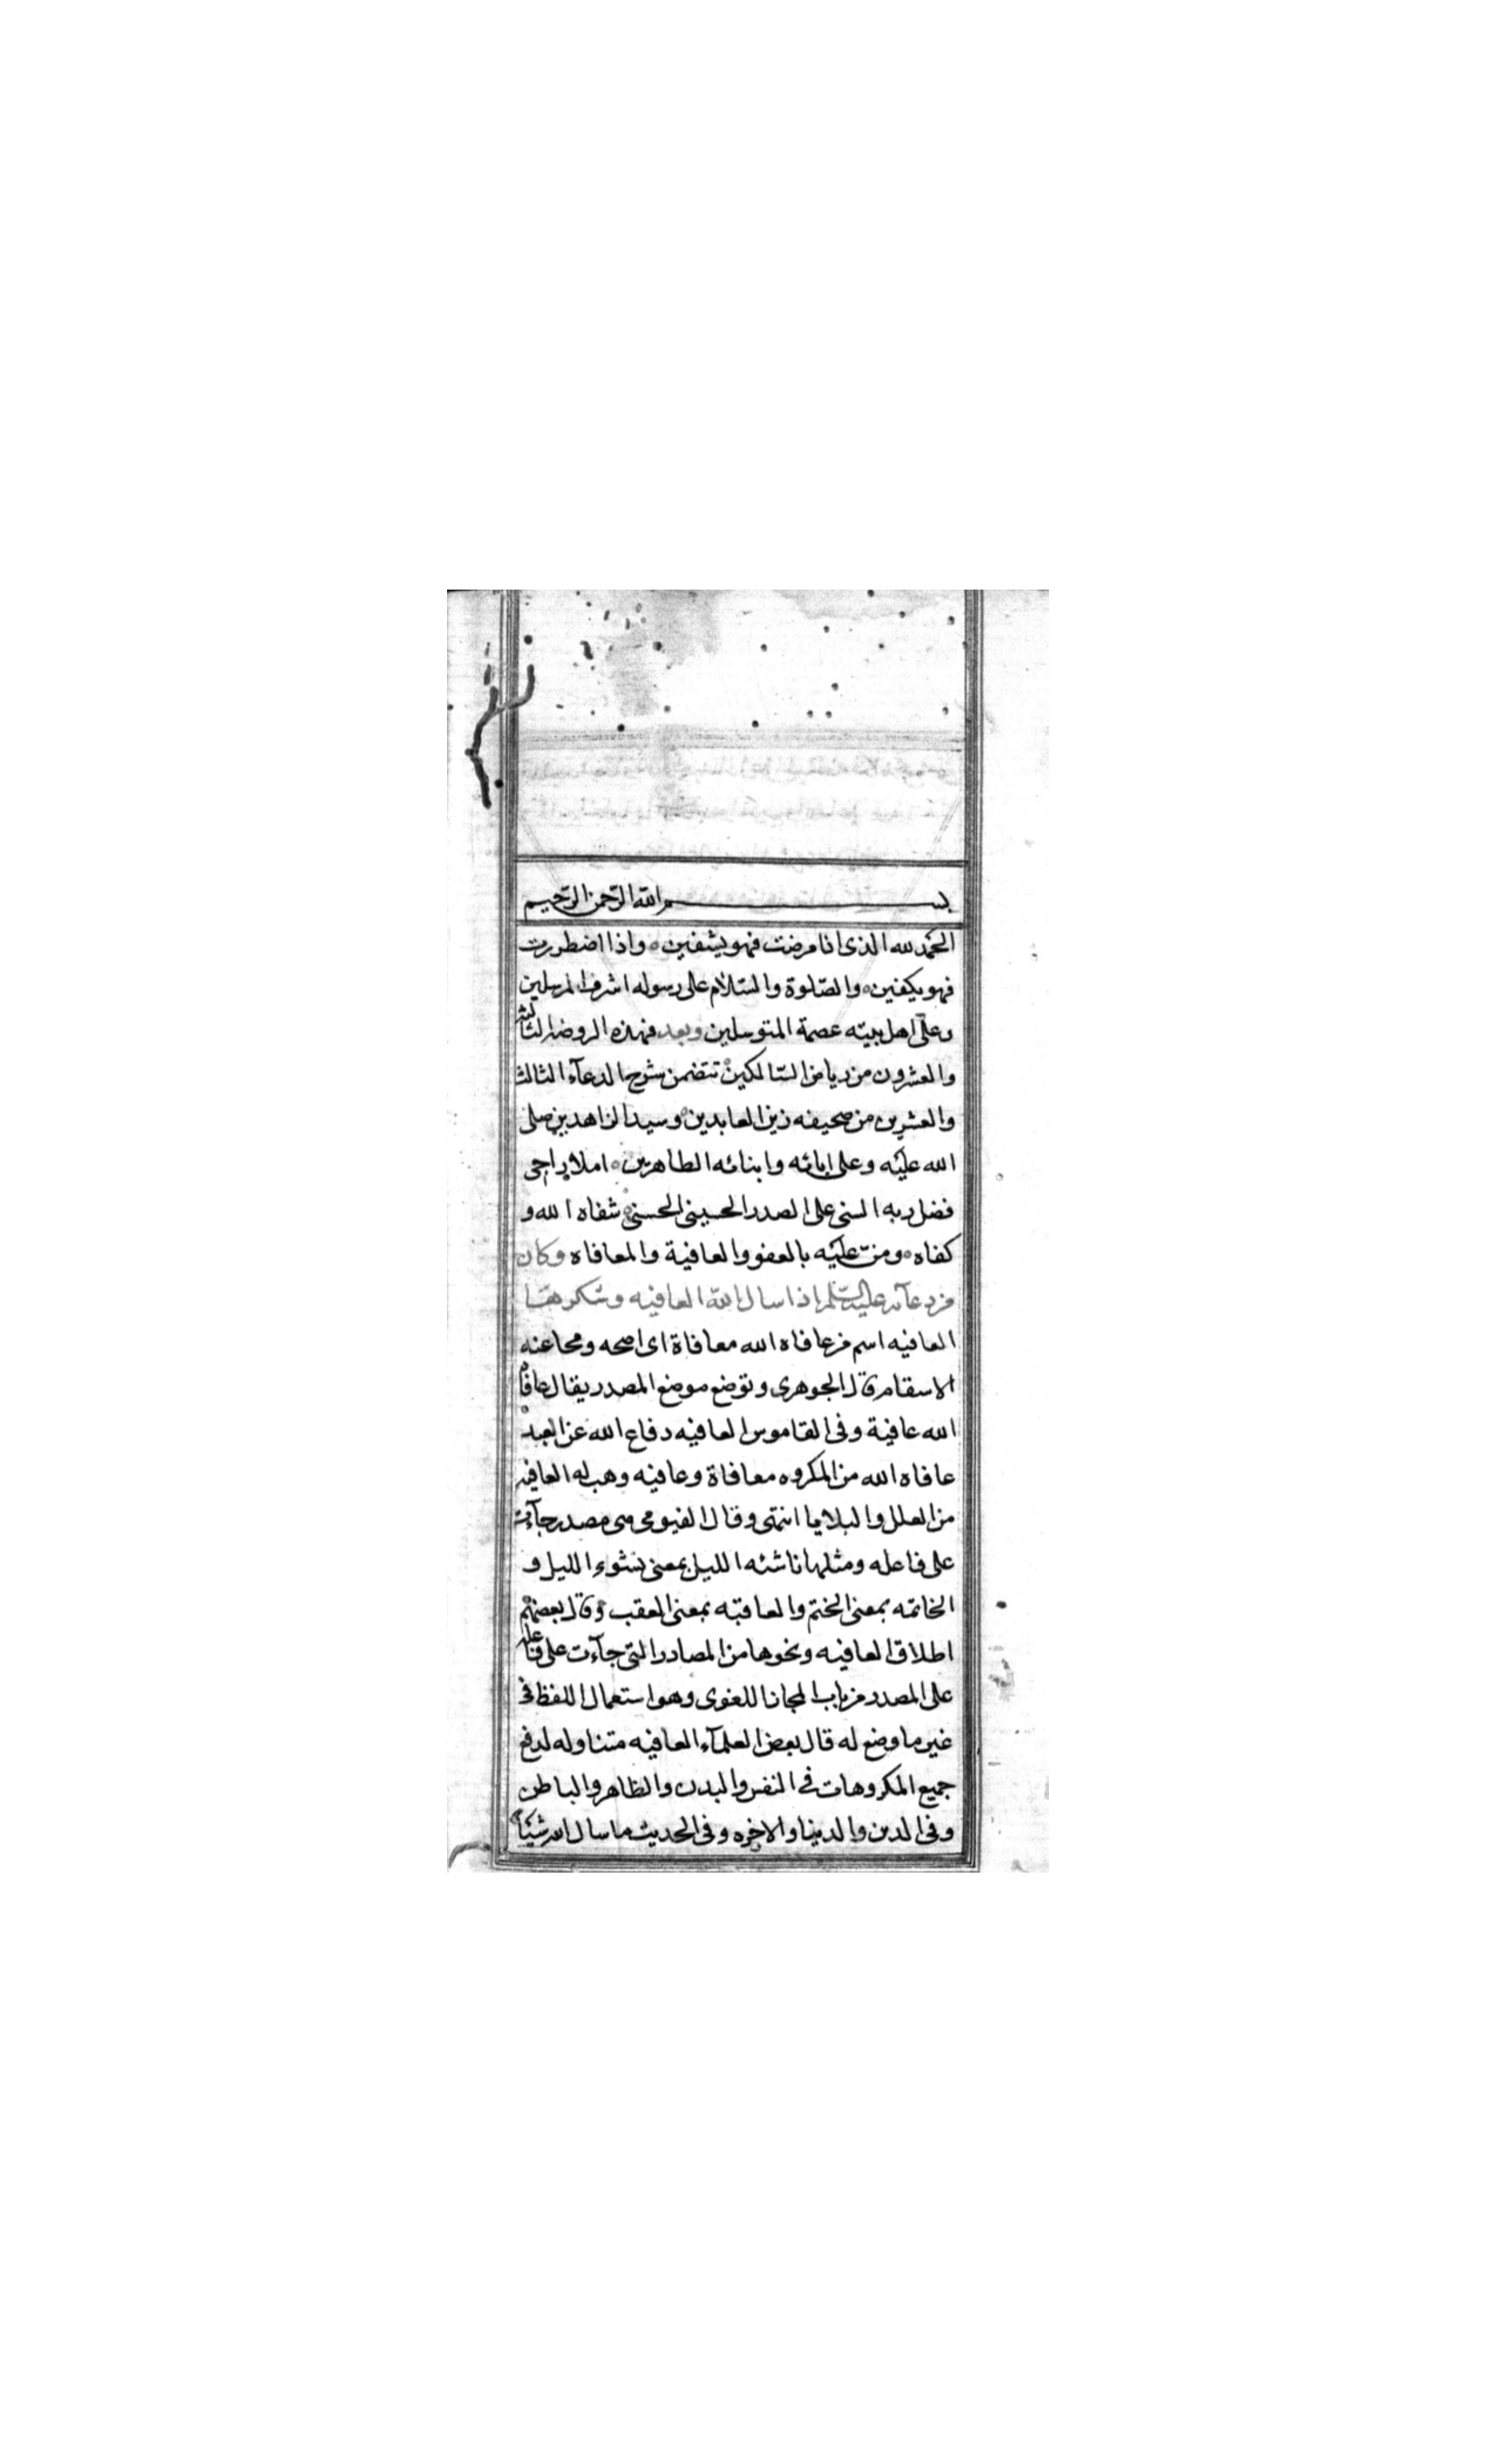 بسم الله الرحمن الرحيم
الحمد لله الذى اذا مرضت فهو يشفين ٥ واذا اضطررت
فهو يكفين ٥ والصّلوة والسّلام على رسوله اشرف المرسلين
وعلى اهل بيته عصمة المتوسلين وبعد فهذه الروضه الثالثه
والعشرون من رياض السّالكين تتضمن شرح الدعآء الثالث
والعشرين من صحيفه زين العابدين وسيد الزاهدين صلى
الله عليه وعلى ابائه وابنائه الطاهرين ٥ املاء راجى
فضل ربه السنى على الصدر الحسينى الحسنى شفاه الله و
كفاه ٥ ومنّ عليه بالعفو والعافية والمعافاه وكان
من دعآئه عليه السّلم اذا سال الله العافيه وشكرها
العافيه اسم من عافاه الله معافاة اى اصحه ومحا عنه
الاسقام قال الجوهرى وتوضع موضع المصدر يقال عافاه
الله عافية وفى القاموس العافيه دفاع الله عن العبد
عافاه الله من المكروه معافاة وعافيه وهب له العافيه
من العلل والبلايا انتهى وقال الفيومى هى مصدر جآءت
على فاعله ومثلها ناشئه الليل بمعنى نشوء الليل و
الخاتمه بمعنى الختم والعاقبه بمعنى العقب وقال بعضهم
اطلاق العافيه ونحوها من المصادر التى جآءت على فاعله
على المصدر من باب المجاز اللغوى وهو استعمال اللفظ فى
غير ما وضع له قال بعض العلمآء العافيه متناوله لدفع
جميع المكروهات فى النفس والبدن والظاهر والباطن
وفى الدين والدينا والاخره وفى الحديث ما سال الله شيئا